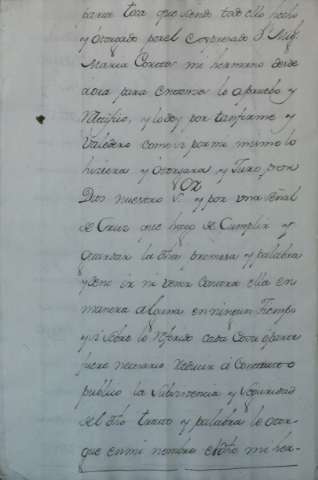 para toca que siendo todo ello hecho
y otorgado por el expresado Dn Migl
Maria Coreto mi hermano desde
aora para entonces lo apruebo y
Ratifico, y doy por tan firme y
Valedero como si por mi mismo lo
hiciera y otorgara, y Juro por
Dios nuestro Sr y por una señal
de Cruz que hago de Cumplir y
guardar la dha promesa y palabra
y de no ir ni venir contra ella en
manera alguna en ningun Tiempo
y si sobre lo Referido cada cosa o parte
fuere necesario Reducir á Contrato
publico la subsistencia y seguridad
del dho trato y palabra lo otor-
gue en mi nombre el dho mi her-